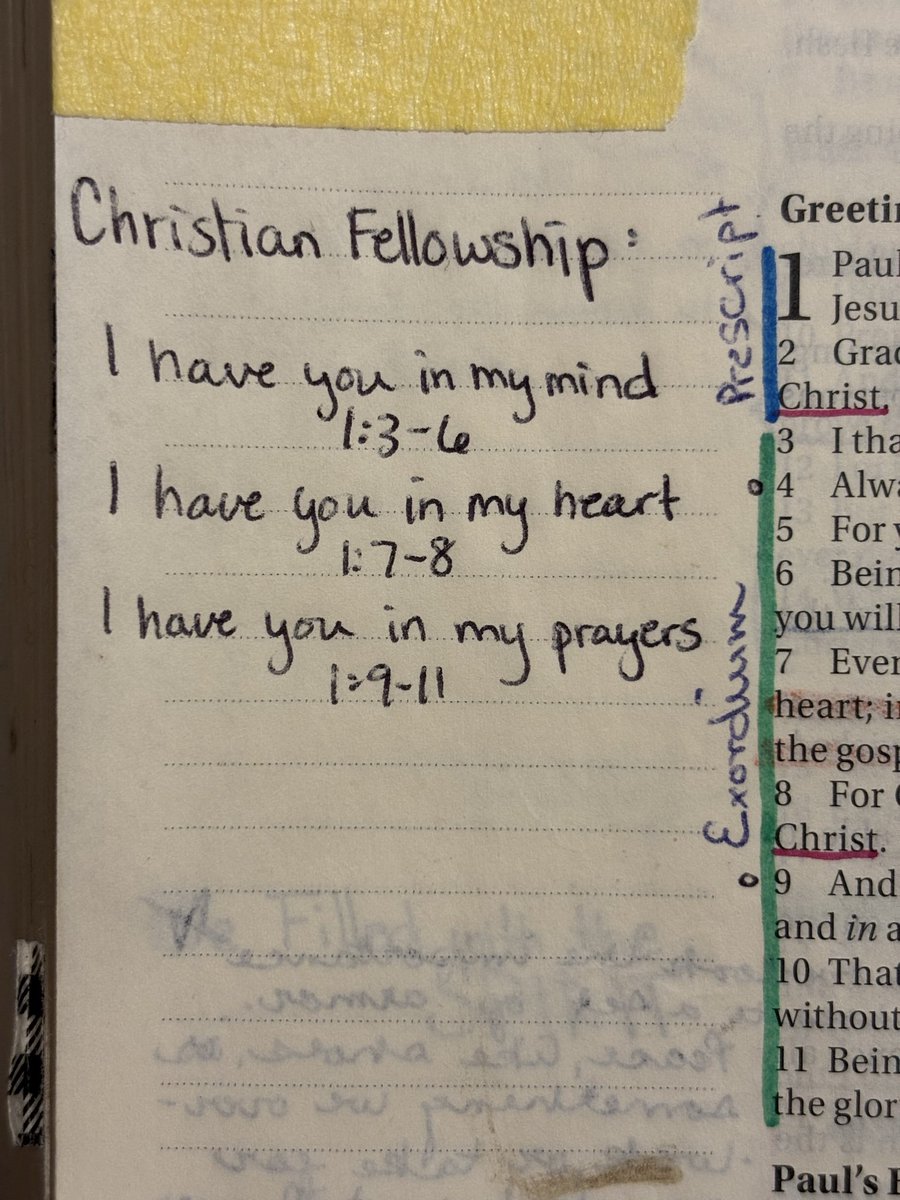 Christian Fellowship:
I have you in my mind
1:3-6
I have you in my heart
1:7-8
I have you in my prayers
1:9-11
Prescript
Exordium
Greetin
1 Paul
Jesu
2 Grac
Christ.
3 I tha
4 Alwa
5 For y
6 Bein
you will
7 Even
heart; i
the gosp
8 For G
Christ.
9 And
and in a
10 That
without
11 Bein
the glor
Paul's